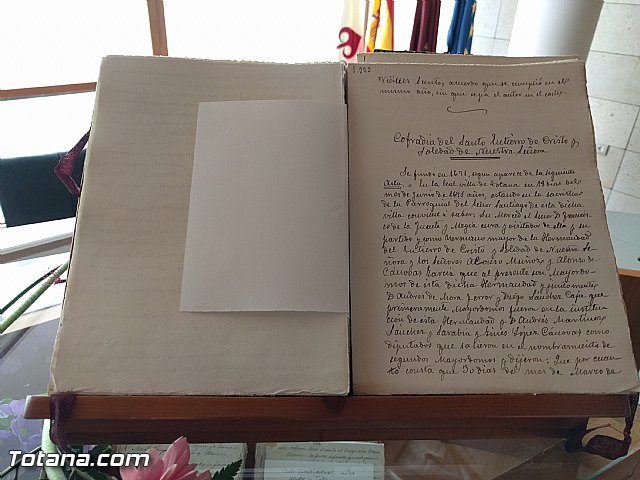 Viernes Santo, acuerdo que se cumplió en el
mismo año, sin que sepa el autor en el
Cofradia del Santo Entierro de Cristo y
Soledad de Nuestra Señora
Se fundó en 1671, segun aparece de la siguiente
Acta, "En la leal villa de Totana en 19 dias del
mes de Junio de 1671 años, estando en la sacristia
de la Parroquial del Señor Santiago de esta dicha
villa conviene a saber Su Merced el Señor D.
co de la y Megia cura y de ella y su
partido y como hermano mayor de la Hermandad
del Entierro de Cristo y Soledad de Nuestra Se-
ñora y los Señores Alonso Muñoz y Alonso de
Cánovas Garcia que al presente son Mayordo-
mos de esta dicha Hermandad y juntamente
D Andres de Mora y Diego Sanchez Caja que
primeramente Mayordomos fueron en la institu-
cion de esta Hermandad y D Andrés Martinez
Sánchez y Sarabia y Gines López Cánovas como
diputados que salieron en el nombramiento de
segundos Mayordomos y dijeron: Que por cuan-
to consta que 30 dias del mes de Marzo de
Totana.com